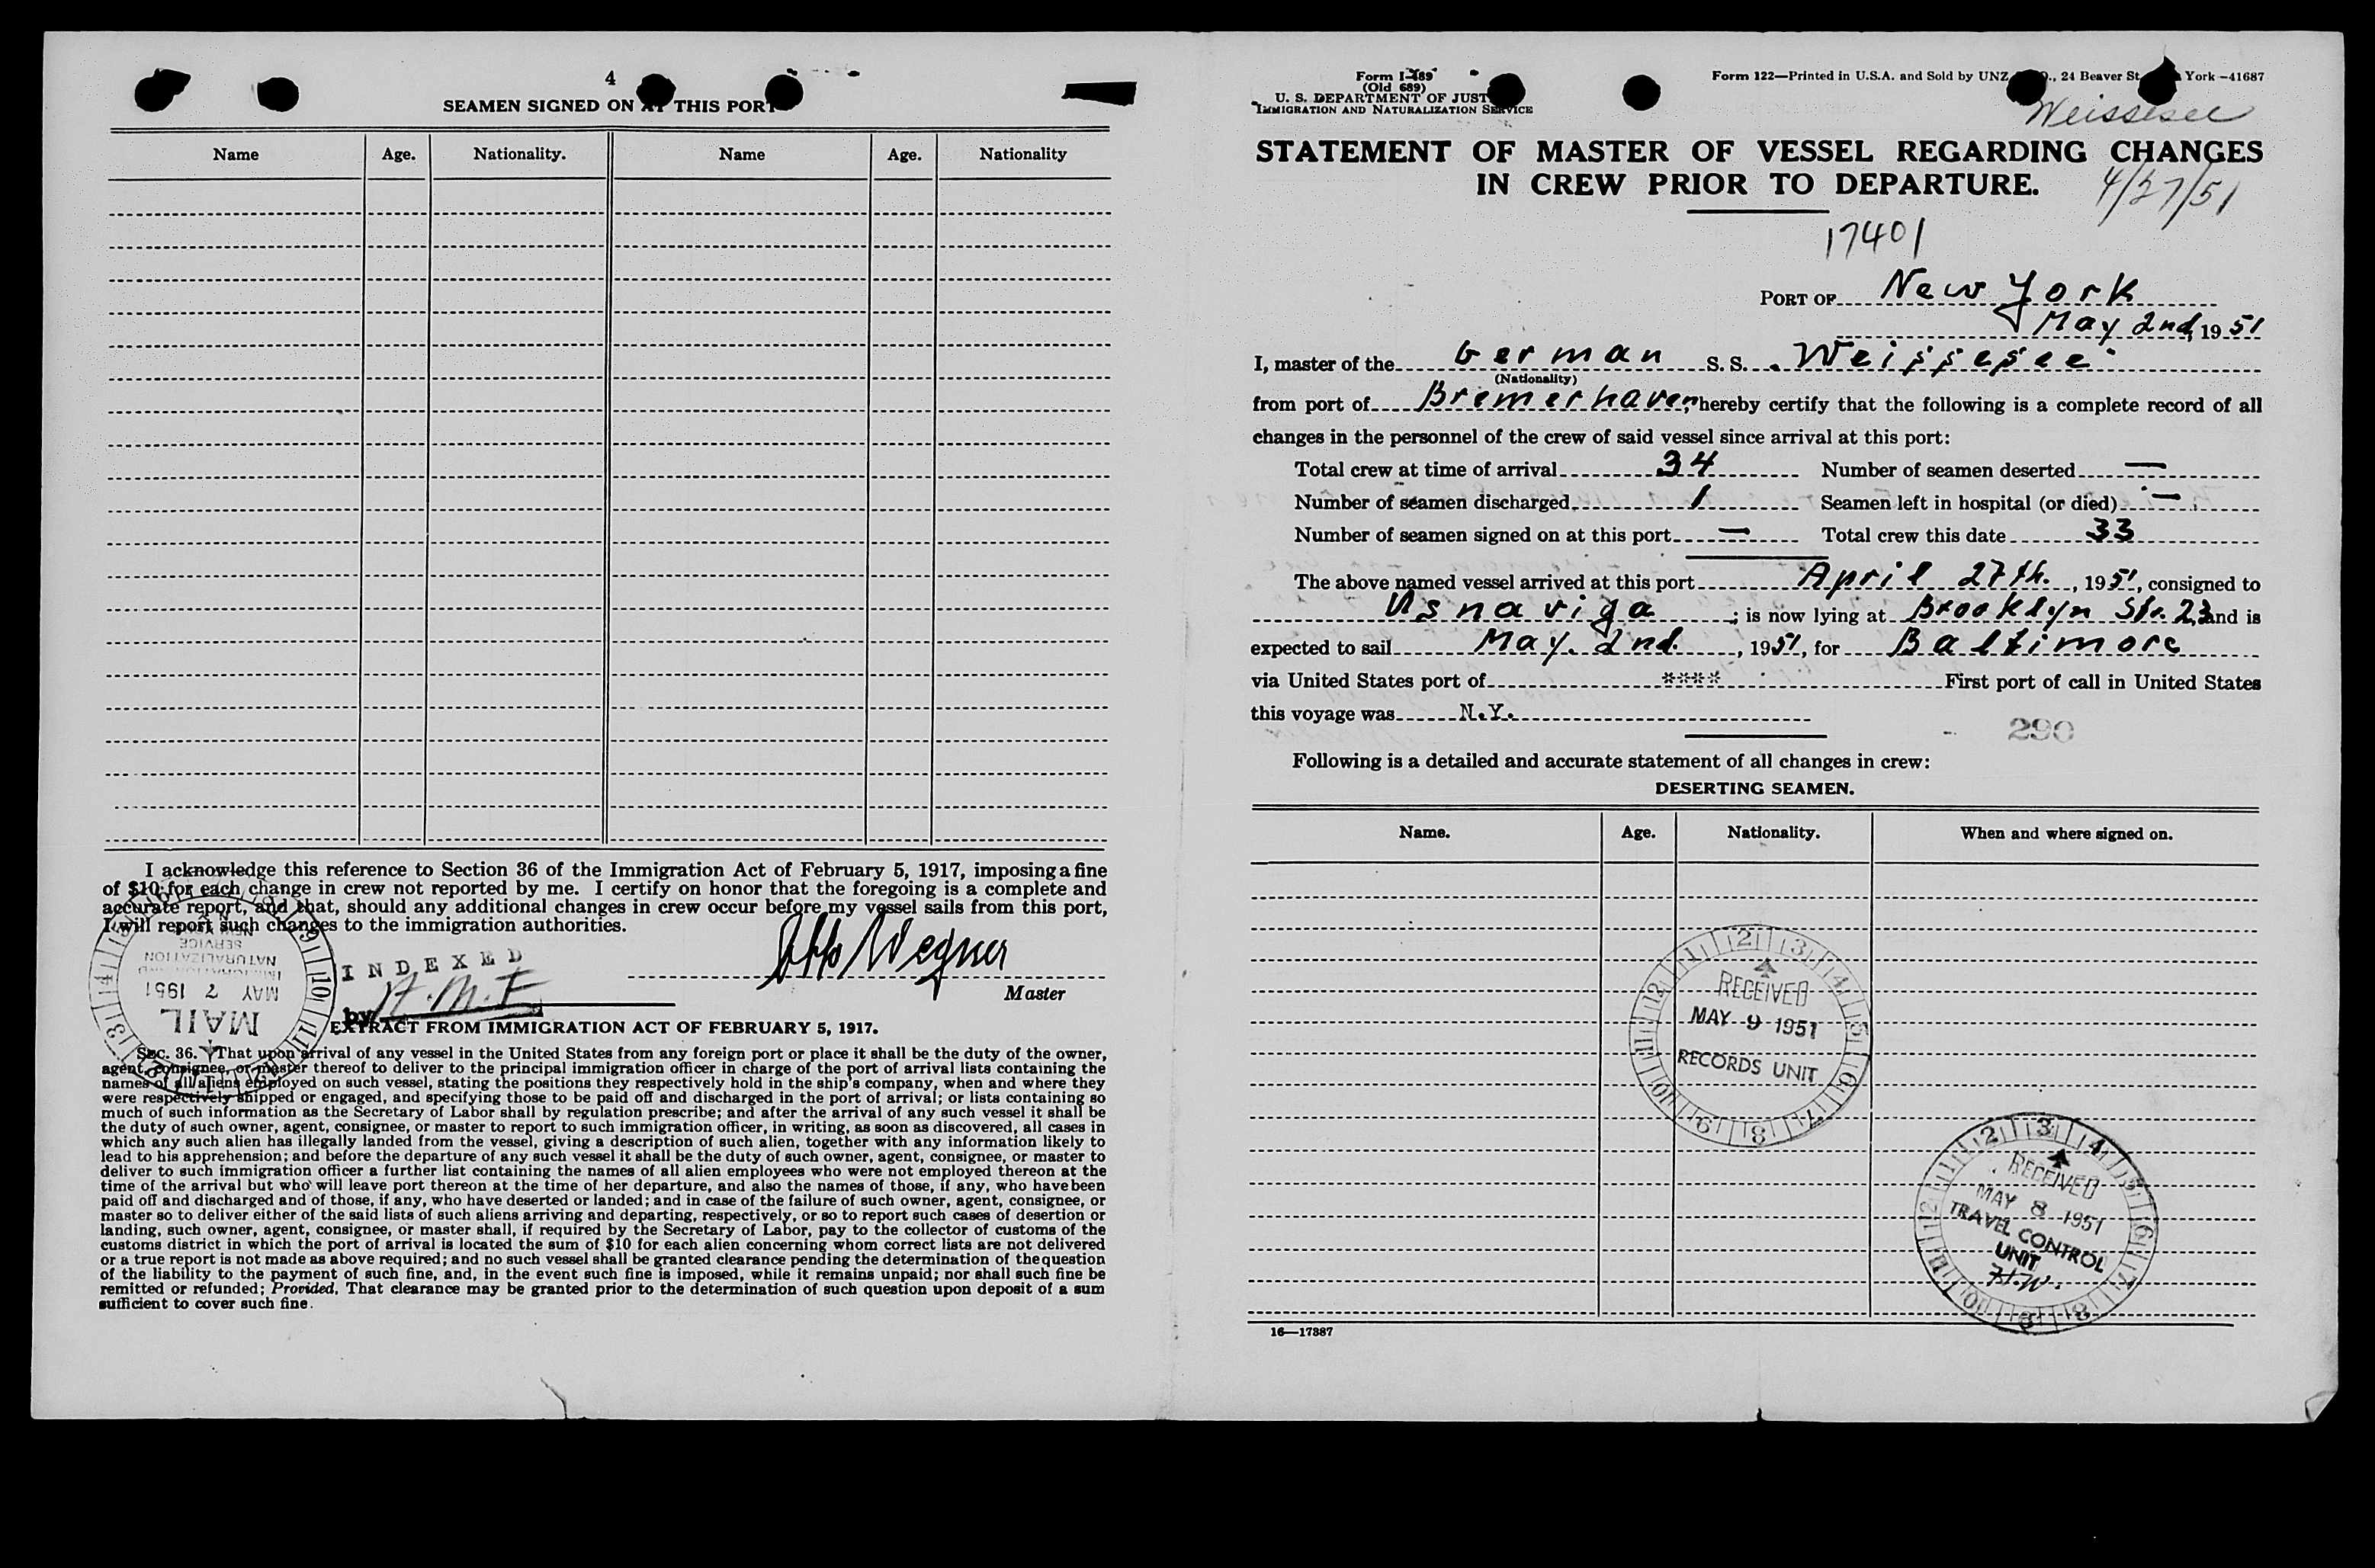 4
SEAMEN SIGNED ON AT THIS PORT
Name Age. Nationality. Name Age. Nationality
I acknowledge this reference to Section 36 of the Immigration Act of February 5, 1917, imposing a fine
of $10 for each change in crew not reported by me. I certify on honor that the foregoing is a complete and
accurate report, and that, should any additional changes in crew occur before my vessel sails from this port,
I will report such changes to the immigration authorities.
IMMIGRATION AND
NATURALIZATION
SERVICE
MAY 7 1951
MAIL
INDEXED
by H.M.F.
Otto Wegner
Master
EXTRACT FROM IMMIGRATION ACT OF FEBRUARY 5, 1917.
Sec. 36. That upon arrival of any vessel in the United States from any foreign port or place it shall be the duty of the owner,
agent, consignee, or master thereof to deliver to the principal immigration officer in charge of the port of arrival lists containing the
names of all aliens employed on such vessel, stating the positions they respectively hold in the ship's company, when and where they
were respectively shipped or engaged, and specifying those to be paid off and discharged in the port of arrival; or lists containing so
much of such information as the Secretary of Labor shall by regulation prescribe; and after the arrival of any such vessel it shall be
the duty of such owner, agent, consignee, or master to report to such immigration officer, in writing, as soon as discovered, all cases in
which any such alien has illegally landed from the vessel, giving a description of such alien, together with any information likely to
lead to his apprehension; and before the departure of any such vessel it shall be the duty of such owner, agent, consignee, or master to
deliver to such immigration officer a further list containing the names of all alien employees who were not employed thereon at the
time of the arrival but who will leave port thereon at the time of her departure, and also the names of those, if any, who have been
paid off and discharged and of those, if any, who have deserted or landed; and in case of the failure of such owner, agent, consignee, or
master so to deliver either of the said lists of such aliens arriving and departing, respectively, or so to report such cases of desertion or
landing, such owner, agent, consignee, or master shall, if required by the Secretary of Labor, pay to the collector of customs of the
customs district in which the port of arrival is located the sum of $10 for each alien concerning whom correct lists are not delivered
or a true report is not made as above required; and no such vessel shall be granted clearance pending the determination of the question
of the liability to the payment of such fine, and, in the event such fine is imposed, while it remains unpaid; nor shall such fine be
remitted or refunded; Provided, That clearance may be granted prior to the determination of such question upon deposit of a sum
sufficient to cover such fine.
Form I-489
(Old 689)
U. S. DEPARTMENT OF JUST
IMMIGRATION AND NATURALIZATION SERVICE
Form 122—Printed in U.S.A. and Sold by UNZ ., 24 Beaver St York—41687
Weissesee
STATEMENT OF MASTER OF VESSEL REGARDING CHANGES
IN CREW PRIOR TO DEPARTURE.
4/27/51
17401
PORT OF New York
May 2nd, 1951
I, master of the German S. S. Weissesee
(Nationality)
from port of Bremerhaven, hereby certify that the following is a complete record of all
changes in the personnel of the crew of said vessel since arrival at this port:
Total crew at time of arrival 34 Number of seamen deserted —
Number of seamen discharged 1 Seamen left in hospital (or died) —
Number of seamen signed on at this port — Total crew this date 33
The above named vessel arrived at this port April 27th., 1951, consigned to
Usnaviga; is now lying at Brooklyn Str. 23 and is
expected to sail May. 2nd., 1951, for Baltimore
via United States port of **** First port of call in United States
this voyage was N.Y.
290
Following is a detailed and accurate statement of all changes in crew:
DESERTING SEAMEN.
Name. Age. Nationality. When and where signed on.
RECEIVED
MAY 9 1951
RECORDS UNIT
RECEIVED
MAY 8 1951
TRAVEL CONTROL
UNIT
16—17387